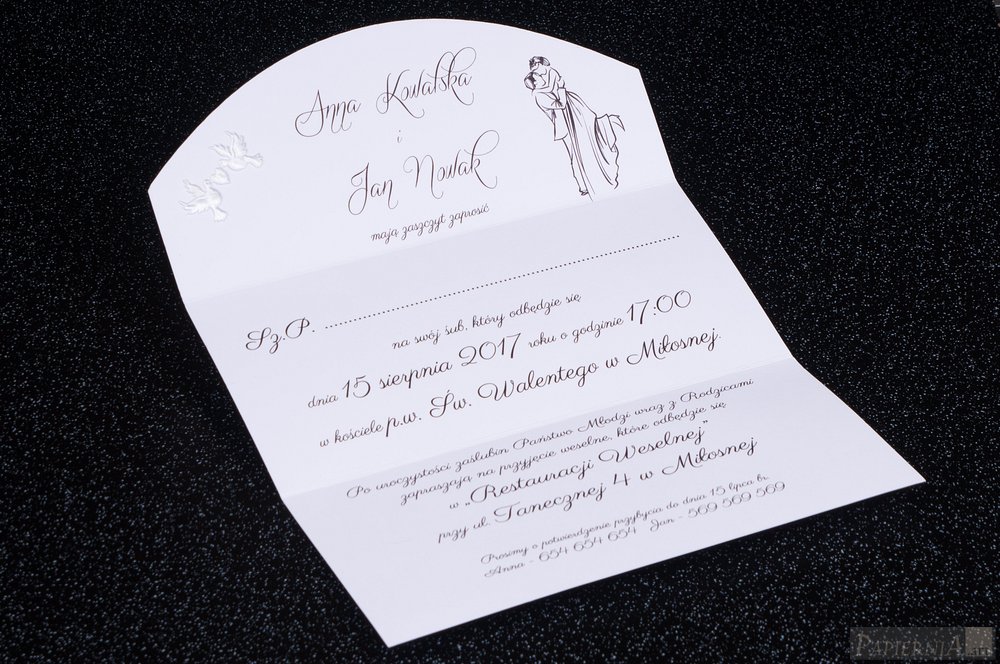 Anna Kowalska
i
Jan Nowak
mają zaszczyt zaprosić
Sz.P. ........................................................
na swój śub, który odbędzie się
dnia 15 sierpnia 2017 roku o godzinie 17:00
w kościele p.w. Św. Walentego w Miłosnej.
Po uroczystości zaślubin Państwo Młodzi wraz z Rodzicami
zapraszają na przyjęcie weselne, które odbędzie się
w „Restauracji Weselnej”
przy ul. Tanecznej 4 w Miłosnej
Prosimy o potwierdzenie przybycia do dnia 15 lipca br.
Anna - 654 654 654 Jan - 569 569 569
PAPIERNIA